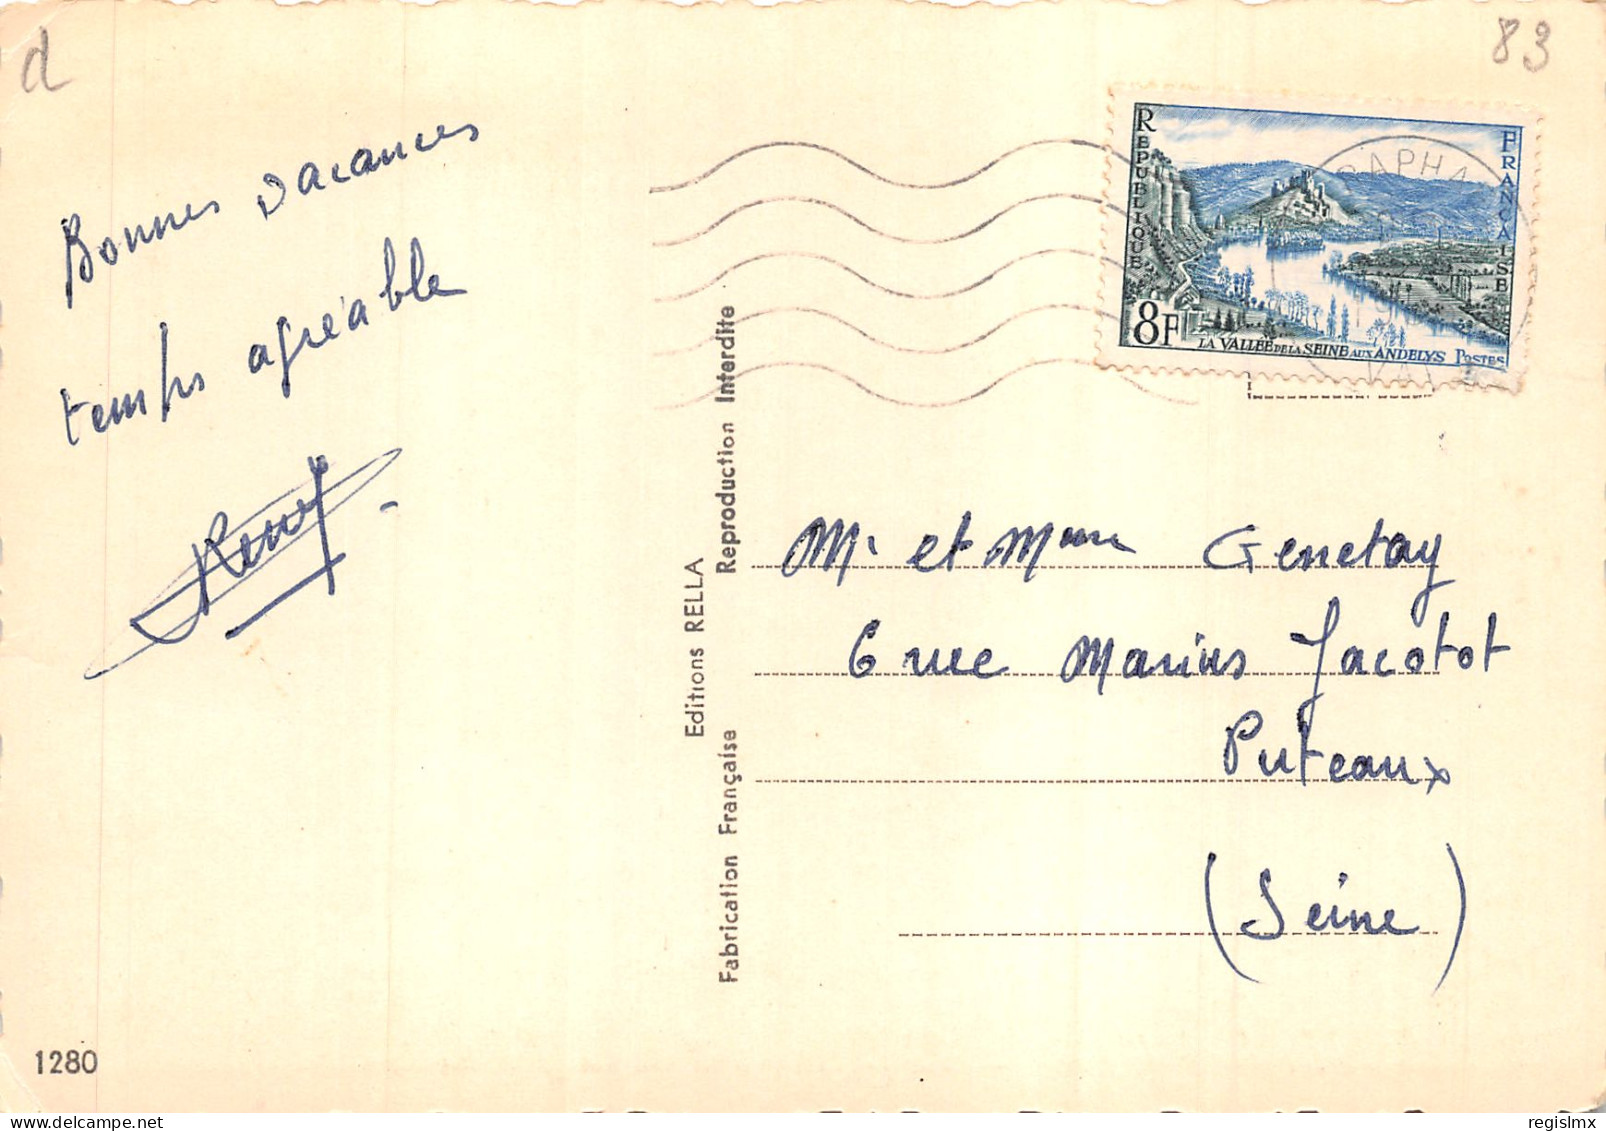 d
83
Bonnes vacances
temps agréable
Remy
RÉPUBLIQUE
FRANÇAISE
8F
LA VALLÉE DE LA SEINE AUX ANDELYS POSTES
RAPHA
VAR
Editions RELLA
Reproduction Interdite
Fabrication Française
Mr et Mme Genetay
6 rue Marius Jacotot
Puteaux
(Seine)
1280
regislmx